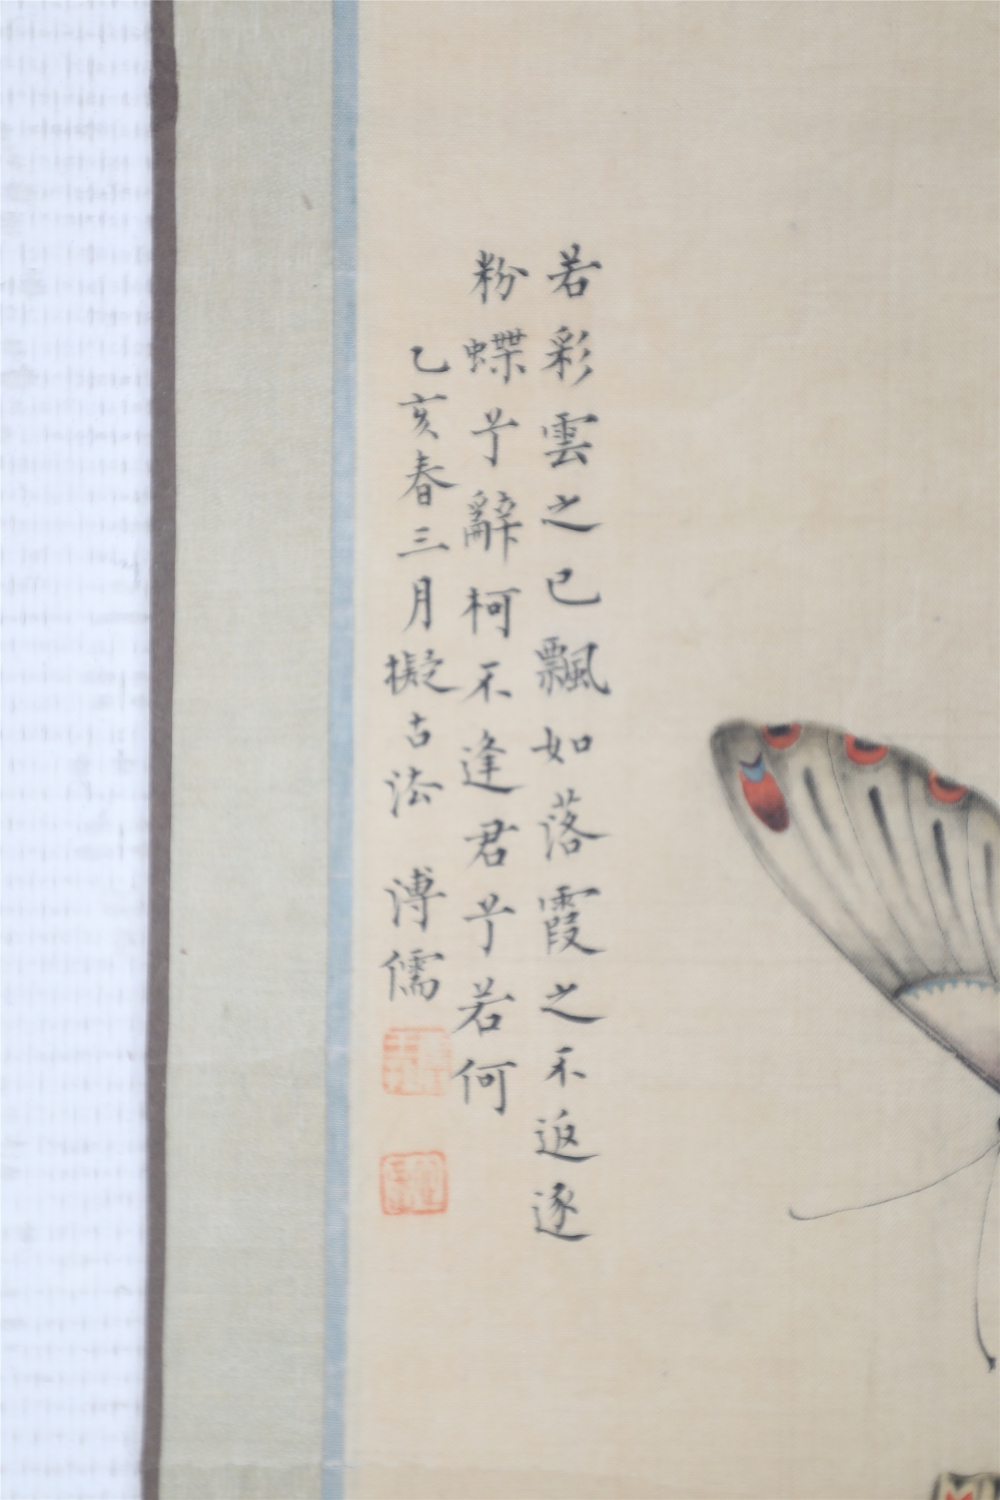 若彩雲之已飄如落霞之不返逐
粉蝶兮辭柯不逢君兮若何
乙亥春三月擬古法 溥儒